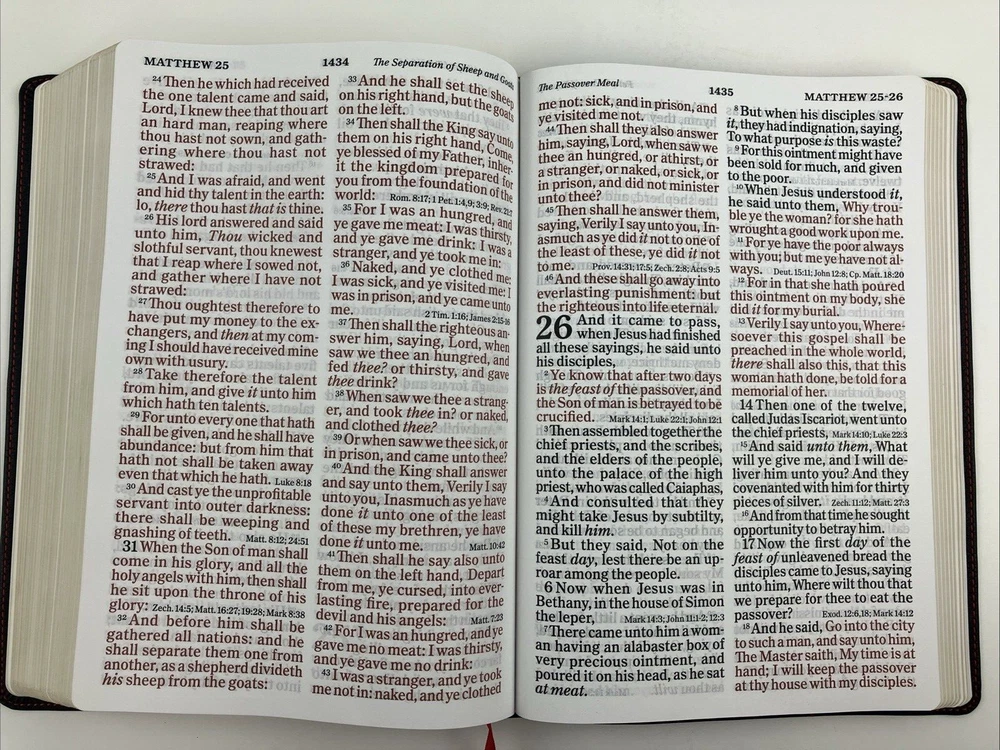 MATTHEW 25 1434 The Separation of Sheep and Goats
24 Then he which had received
the one talent came and said,
Lord, I knew thee that thou art
an hard man, reaping where
thou hast not sown, and gath-
ering where thou hast not
strawed:
25 And I was afraid, and went
and hid thy talent in the earth:
lo, there thou hast that is thine.
26 His lord answered and said
unto him, Thou wicked and
slothful servant, thou knewest
that I reap where I sowed not,
and gather where I have not
strawed:
27 Thou oughtest therefore to
have put my money to the ex-
changers, and then at my com-
ing I should have received mine
own with usury.
28 Take therefore the talent
from him, and give it unto him
which hath ten talents.
29 For unto every one that hath
shall be given, and he shall have
abundance: but from him that
hath not shall be taken away
even that which he hath. Luke 8:18
30 And cast ye the unprofitable
servant into outer darkness:
there shall be weeping and
gnashing of teeth. Matt. 8:12; 24:51
31 When the Son of man shall
come in his glory, and all the
holy angels with him, then shall
he sit upon the throne of his
glory: Zech. 14:5; Matt. 16:27; 19:28; Mark 8:38
32 And before him shall be
gathered all nations: and he
shall separate them one from
another, as a shepherd divideth
his sheep from the goats:
33 And he shall set the sheep
on his right hand, but the goats
on the left.
34 Then shall the King say unto
them on his right hand, Come,
ye blessed of my Father, inher-
it the kingdom prepared for
you from the foundation of the
world: Rom. 8:17; 1 Pet. 1:4,9; 3:9; Rev. 21:7
35 For I was an hungred, and
ye gave me meat: I was thirsty,
and ye gave me drink: I was a
stranger, and ye took me in:
36 Naked, and ye clothed me:
I was sick, and ye visited me: I
was in prison, and ye came unto
me. 2 Tim. 1:16; James 2:15-16
37 Then shall the righteous an-
swer him, saying, Lord, when
saw we thee an hungred, and
fed thee? or thirsty, and gave
thee drink?
38 When saw we thee a strang-
er, and took thee in? or naked,
and clothed thee?
39 Or when saw we thee sick, or
in prison, and came unto thee?
40 And the King shall answer
and say unto them, Verily I say
unto you, Inasmuch as ye have
done it unto one of the least
of these my brethren, ye have
done it unto me. Matt. 10:42
41 Then shall he say also unto
them on the left hand, Depart
from me, ye cursed, into ever-
lasting fire, prepared for the
devil and his angels: Matt. 7:23
42 For I was an hungred, and ye
gave me no meat: I was thirsty,
and ye gave me no drink:
43 I was a stranger, and ye took
me not in: naked, and ye clothed
The Passover Meal 1435 MATTHEW 25-26
me not: sick, and in prison, and
ye visited me not.
44 Then shall they also answer
him, saying, Lord, when saw we
thee an hungred, or athirst, or
a stranger, or naked, or sick, or
in prison, and did not minister
unto thee?
45 Then shall he answer them,
saying, Verily I say unto you, In-
asmuch as ye did it not to one of
the least of these, ye did it not
to me. Prov. 14:31; 17:5; Zech. 2:8; Acts 9:5
46 And these shall go away into
everlasting punishment: but
the righteous into life eternal.
26 And it came to pass,
when Jesus had finished
all these sayings, he said unto
his disciples,
2 Ye know that after two days
is the feast of the passover, and
the Son of man is betrayed to be
crucified. Mark 14:1; Luke 22:1; John 12:1
3 Then assembled together the
chief priests, and the scribes,
and the elders of the people,
unto the palace of the high
priest, who was called Caiaphas,
4 And consulted that they
might take Jesus by subtilty,
and kill him.
5 But they said, Not on the
feast day, lest there be an up-
roar among the people.
6 Now when Jesus was in
Bethany, in the house of Simon
the leper, Mark 14:3; John 11:1-2; 12:3
7 There came unto him a wom-
an having an alabaster box of
very precious ointment, and
poured it on his head, as he sat
at meat.
8 But when his disciples saw
it, they had indignation, saying,
To what purpose is this waste?
9 For this ointment might have
been sold for much, and given
to the poor.
10 When Jesus understood it,
he said unto them, Why trou-
ble ye the woman? for she hath
wrought a good work upon me.
11 For ye have the poor always
with you; but me ye have not al-
ways. Deut. 15:11; John 12:8; Cp. Matt. 18:20
12 For in that she hath poured
this ointment on my body, she
did it for my burial.
13 Verily I say unto you, Where-
soever this gospel shall be
preached in the whole world,
there shall also this, that this
woman hath done, be told for a
memorial of her.
14 Then one of the twelve,
called Judas Iscariot, went unto
the chief priests, Mark 14:10; Luke 22:3
15 And said unto them, What
will ye give me, and I will de-
liver him unto you? And they
covenanted with him for thirty
pieces of silver. Zech. 11:12; Matt. 27:3
16 And from that time he sought
opportunity to betray him.
17 Now the first day of the
feast of unleavened bread the
disciples came to Jesus, saying
unto him, Where wilt thou that
we prepare for thee to eat the
passover? Exod. 12:6,18; Mark 14:12
18 And he said, Go into the city
to such a man, and say unto him,
The Master saith, My time is at
hand; I will keep the passover
at thy house with my disciples.